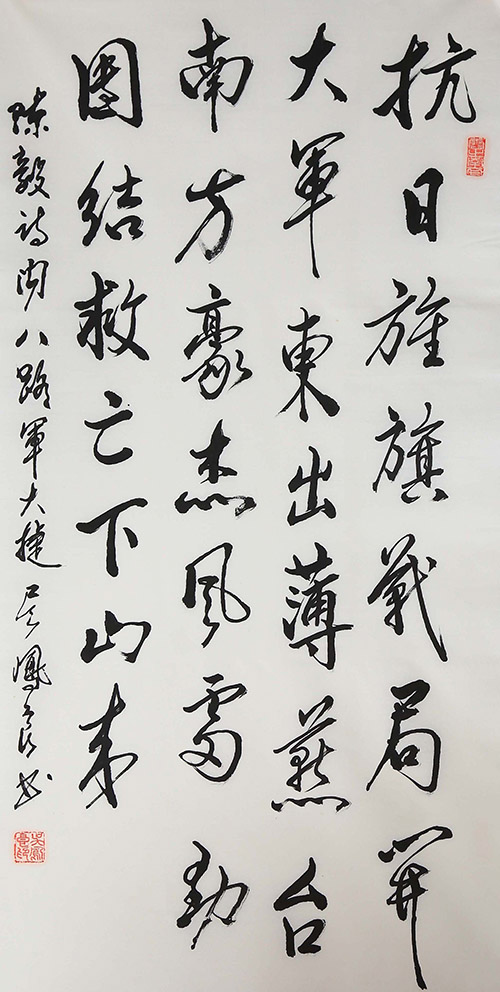 抗日旌旗戰局開
大軍東出薄燕台
南方豪杰風雷動
團結救亡下山来
陳毅詩聞八路軍大捷 吴鳳亮书